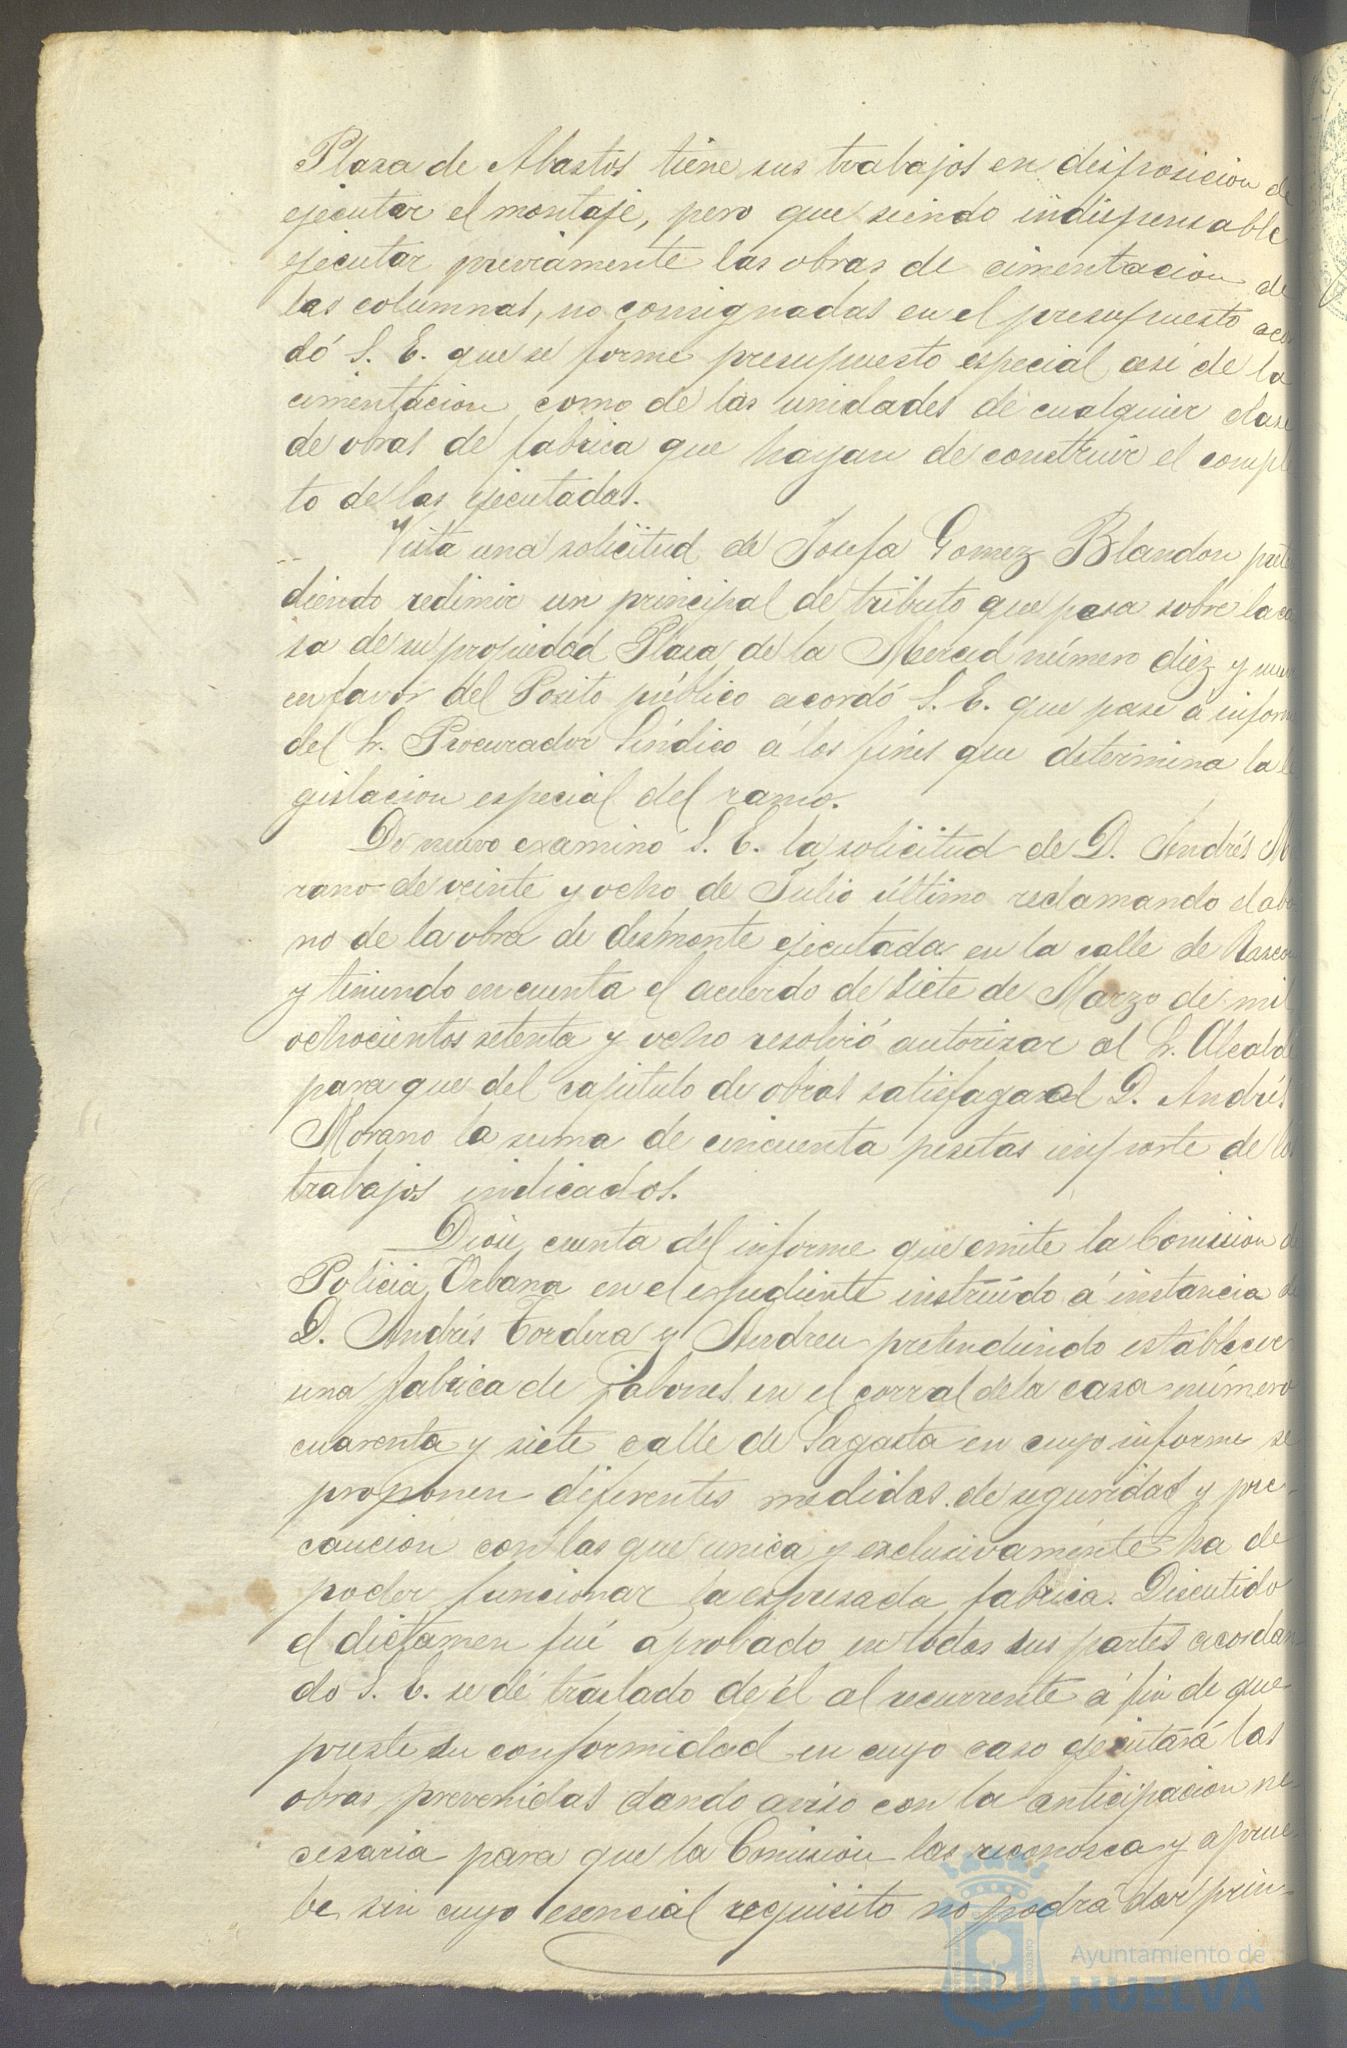 Plaza de Abastos tiene sus trabajos en disposicion de
ejecutar el montaje, pero que siendo indispensable
ejecutar previamente las obras de cimentacion de
las columnas, no consignadas en el presupuesto acor
dó S. E. que se forme presupuesto especial así de la
cimentacion como de las unidades de cualquier clase
de obras de fabrica que hayan de construir el comple
to de las ejecutadas.
Vista una solicitud de Josefa Gomez Blandon preten
diendo redimir un principal de tributo que pesa sobre la ca
sa de su propiedad Plaza de la Merced número diez y
en favor del Posito público acordó S. E. que pase á informe
del Sr. Procurador Síndico á los fines que determina la le
gislacion especial del ramo.
De nuevo examinó S. E. la solicitud de D. Andrés Mo
rano de veinte y ocho de Julio último reclamando el abo
no de la obra de desmonte ejecutada en la calle de Rascon
y teniendo en cuenta el acuerdo de siete de Marzo de mil
ochocientos setenta y ocho resolvió autorizar al Sr. Alcalde
para que del capitulo de obras satisfaga al D. Andrés
Morano la suma de cincuenta pesetas importe de los
trabajos indicados.
Diose cuenta del informe que emite la Comision de
Policia Urbana en el expediente instruido á instancia de
D. Andrés Tordera y Andreu pretendiendo establecer
una fabrica de jabones en el corral de la casa número
cuarenta y siete calle de Sagasta en cuyo informe se
proponen diferentes medidas de seguridad y pre-
caucion con las que unica y esclusivamente ha de
poder funcionar la espresada fabrica. Discutido
el dictamen fué aprobado en todas sus partes acordan
do S. E. se dé traslado de él al recurrente á fin de que
preste su conformidad en cuyo caso ejecutará las
obras prevenidas dando aviso con la anticipacion ne
cesaria para que la Comision las reconozca y aprue-
be sin cuyo esencial requisito no podrá dar prin-
Ayuntamiento de
HUELVA